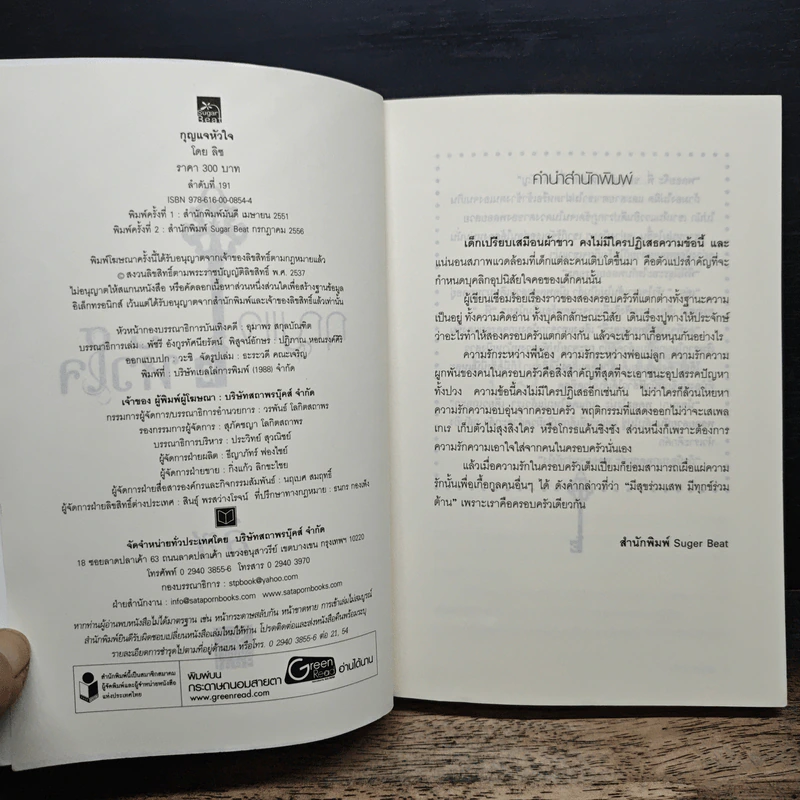 Sugar Beat
กุญแจหัวใจ
โดย ลิซ
ราคา 300 บาท
ลำดับที่ 191
ISBN 978-616-00-0854-4
พิมพ์ครั้งที่ 1 : สำนักพิมพ์มันดี เมษายน 2551
พิมพ์ครั้งที่ 2 : สำนักพิมพ์ Sugar Beat กรกฎาคม 2556
พิมพ์โฆษณาครั้งนี้ได้รับอนุญาตจากเจ้าของลิขสิทธิ์ตามกฎหมายแล้ว
© สงวนลิขสิทธิ์ตามพระราชบัญญัติลิขสิทธิ์ พ.ศ. 2537
ไม่อนุญาตให้สแกนหนังสือ หรือคัดลอกเนื้อหาส่วนหนึ่งส่วนใดเพื่อสร้างฐานข้อมูล
อิเล็กทรอนิกส์ เว้นแต่ได้รับอนุญาตจากสำนักพิมพ์และเจ้าของลิขสิทธิ์แล้วเท่านั้น
หัวหน้ากองบรรณาธิการบันเทิงคดี : อุมาพร สกุลบัณฑิต
บรรณาธิการเล่ม : พัชรี อังกูรทัศนียรัตน์ พิสูจน์อักษร : ปฏิภาณ หอณรงค์ศิริ
ออกแบบปก : วะชิ จัดรูปเล่ม : ธะระวดี คณะเจริญ
พิมพ์ที่ : บริษัทเยลโล่การพิมพ์ (1988) จำกัด
เจ้าของ ผู้พิมพ์ผู้โฆษณา : บริษัทสถาพรบุ๊คส์ จำกัด
กรรมการผู้จัดการ/บรรณาธิการอำนวยการ : วรพันธ์ โลกิตสถาพร
รองกรรมการผู้จัดการ : สุภัชญา โลกิตสถาพร
บรรณาธิการบริหาร : ประวิทย์ สุวณิชย์
ผู้จัดการฝ่ายผลิต : ชีญาภัทร์ ฟองไชย์
ผู้จัดการฝ่ายขาย : กิ่งแก้ว ลิกขะไชย
ผู้จัดการฝ่ายสื่อสารองค์กรและกิจกรรมสัมพันธ์ : นฤเบศ สมฤทธิ์
ผู้จัดการฝ่ายลิขสิทธิ์ต่างประเทศ : สินธุ์ พรสว่างโรจน์ ที่ปรึกษาทางกฎหมาย : ธนกร กองเต็ง
จัดจำหน่ายทั่วประเทศโดย บริษัทสถาพรบุ๊คส์ จำกัด
18 ซอยลาดปลาเค้า 63 ถนนลาดปลาเค้า แขวงอนุสาวรีย์ เขตบางเขน กรุงเทพฯ 10220
โทรศัพท์ 0 2940 3855-6 โทรสาร 0 2940 3970
กองบรรณาธิการ : stpbook@yahoo.com
ฝ่ายสำนักงาน : info@satapornbooks.com / www.satapornbooks.com
หากท่านผู้อ่านพบหนังสือไม่ได้มาตรฐาน เช่น หน้ากระดาษสลับกัน หน้าขาดหาย การเข้าเล่มไม่สมบูรณ์
สำนักพิมพ์ยินดีรับผิดชอบเปลี่ยนหนังสือเล่มใหม่ให้ท่าน โปรดติดต่อและส่งหนังสือคืนพร้อมระบุ
รายละเอียดการชำรุดไปตามที่อยู่ด้านบน หรือโทร. 0 2940 3855-6 ต่อ 21, 54
สำนักพิมพ์นี้เป็นสมาชิกสมาคม
ผู้จัดพิมพ์และผู้จำหน่ายหนังสือ
แห่งประเทศไทย
พิมพ์บน
กระดาษถนอมสายตา
www.greenread.com
Green Read
อ่านได้นาน
คำนำสำนักพิมพ์
เด็กเปรียบเสมือนผ้าขาว คงไม่มีใครปฏิเสธความข้อนี้ และ
แน่นอนสภาพแวดล้อมที่เด็กแต่ละคนเติบโตขึ้นมา คือตัวแปรสำคัญที่จะ
กำหนดบุคลิกอุปนิสัยใจคอของเด็กคนนั้น
ผู้เขียนเชื่อมร้อยเรื่องราวของสองครอบครัวที่แตกต่างทั้งฐานะความ
เป็นอยู่ ทั้งความคิดอ่าน ทั้งบุคลิกลักษณะนิสัย เดินเรื่องปูทางให้ประจักษ์
ว่าอะไรทำให้สองครอบครัวแตกต่างกัน แล้วจะเข้ามาเกื้อหนุนกันอย่างไร
ความรักระหว่างพี่น้อง ความรักระหว่างพ่อแม่ลูก ความรักความ
ผูกพันของคนในครอบครัวคือสิ่งสำคัญที่สุดที่จะเอาชนะอุปสรรคปัญหา
ทั้งปวง ความข้อนี้คงไม่มีใครปฏิเสธอีกเช่นกัน ไม่ว่าใครก็ล้วนโหยหา
ความรักความอบอุ่นจากครอบครัว พฤติกรรมที่แสดงออกไม่ว่าจะเสเพล
เกเร เก็บตัวไม่สุงสิงใคร หรือโกรธแค้นชิงชัง ส่วนหนึ่งก็เพราะต้องการ
ความรักความเอาใจใส่จากคนในครอบครัวนั่นเอง
แล้วเมื่อความรักในครอบครัวเต็มเปี่ยมก็ย่อมสามารถเผื่อแผ่ความ
รักนั้นเพื่อเกื้อกูลคนอื่นๆ ได้ ดังคำกล่าวที่ว่า "มีสุขร่วมเสพ มีทุกข์ร่วม
ต้าน" เพราะเราคือครอบครัวเดียวกัน
สำนักพิมพ์ Suger Beat